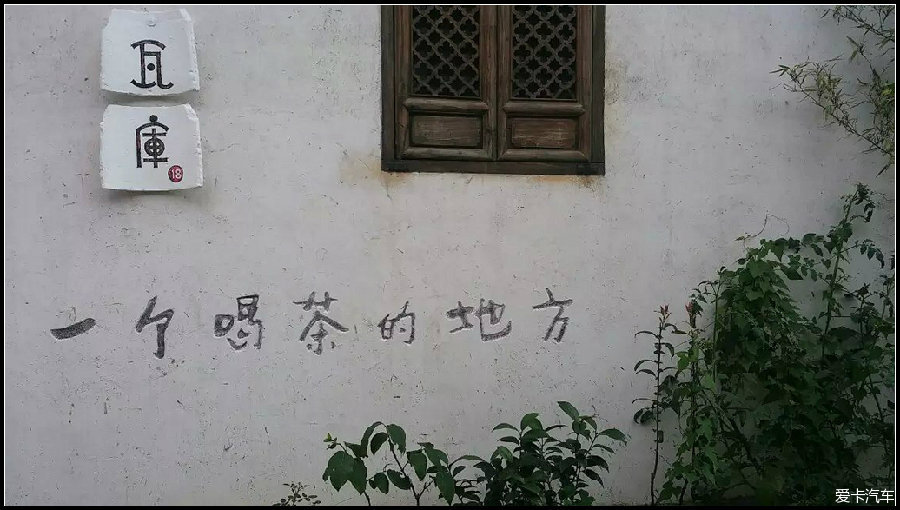 瓦
庫
18
一个喝茶的地方
爱卡汽车